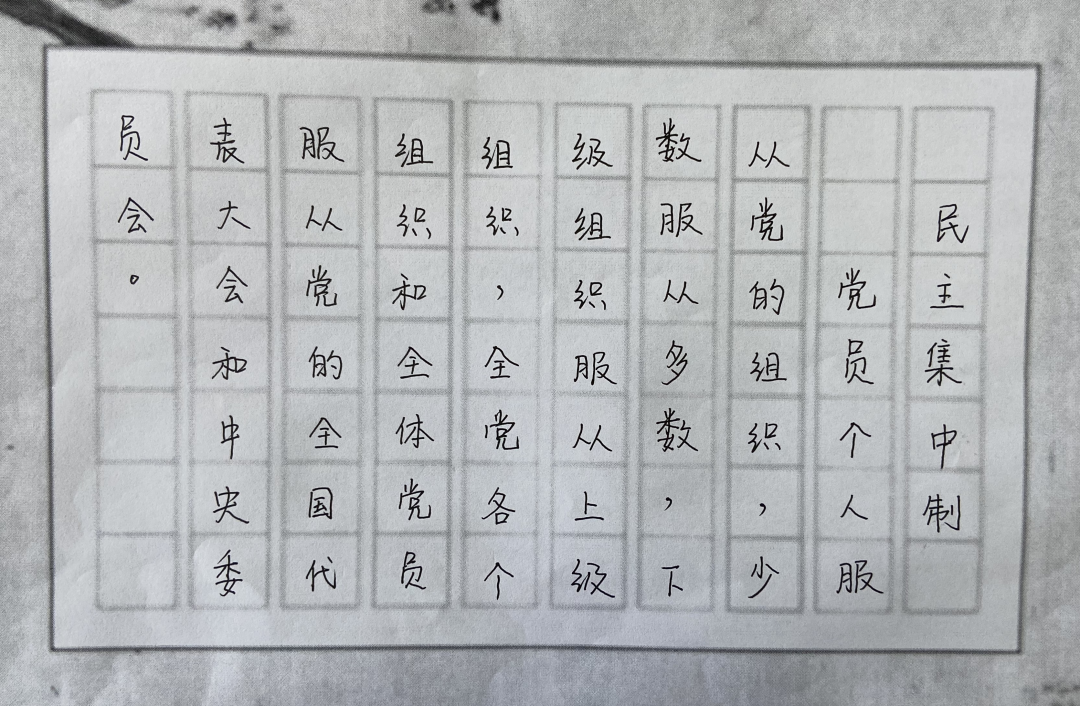 民主集中制
党员个人服
从党的组织，少
数服从多数，下
级组织服从上级
组织，全党各个
组织和全体党员
服从党的全国代
表大会和中央委
员会。